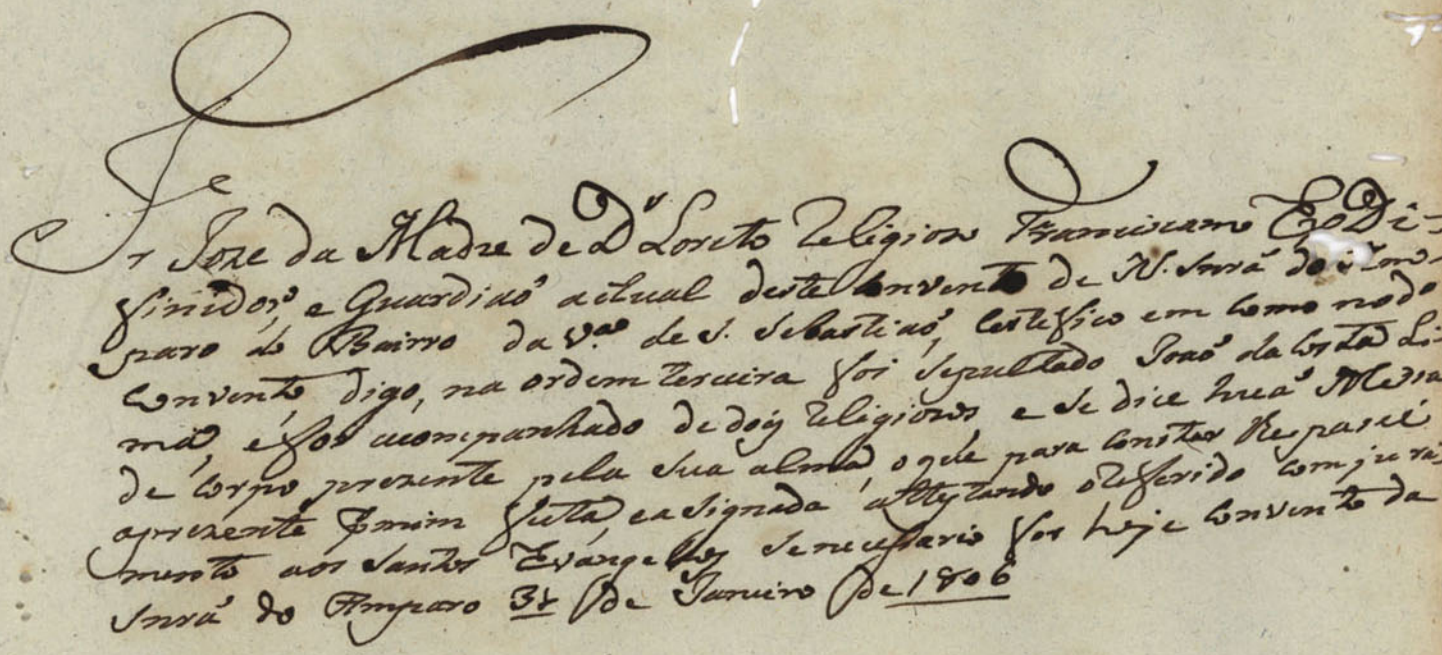 Fr Joze da Madre de D.s Loreto Religiozo Franciscano Ex Di-
finidor, e Guardiaõ actual deste Convento de N. Snrã do Am-
paro do Bairro da V.ª de S. Sebastiaõ, Certefico em como nodo
Convento, digo, na ordem terceira foi sepultado Joaõ da Costa Li-
ma, e foi acompanhado de doiz Religiozos, e se dice huã Missa
de Corpo prezente pela sua alma, o q̃ para constar lhe pasei
aprezente p mim feita, e asignada attestando o referido com jura-
mento aos Santos Evangelhos se necessario for hoje Convento da
Snrã do Amparo 31 de Janeiro de 1806